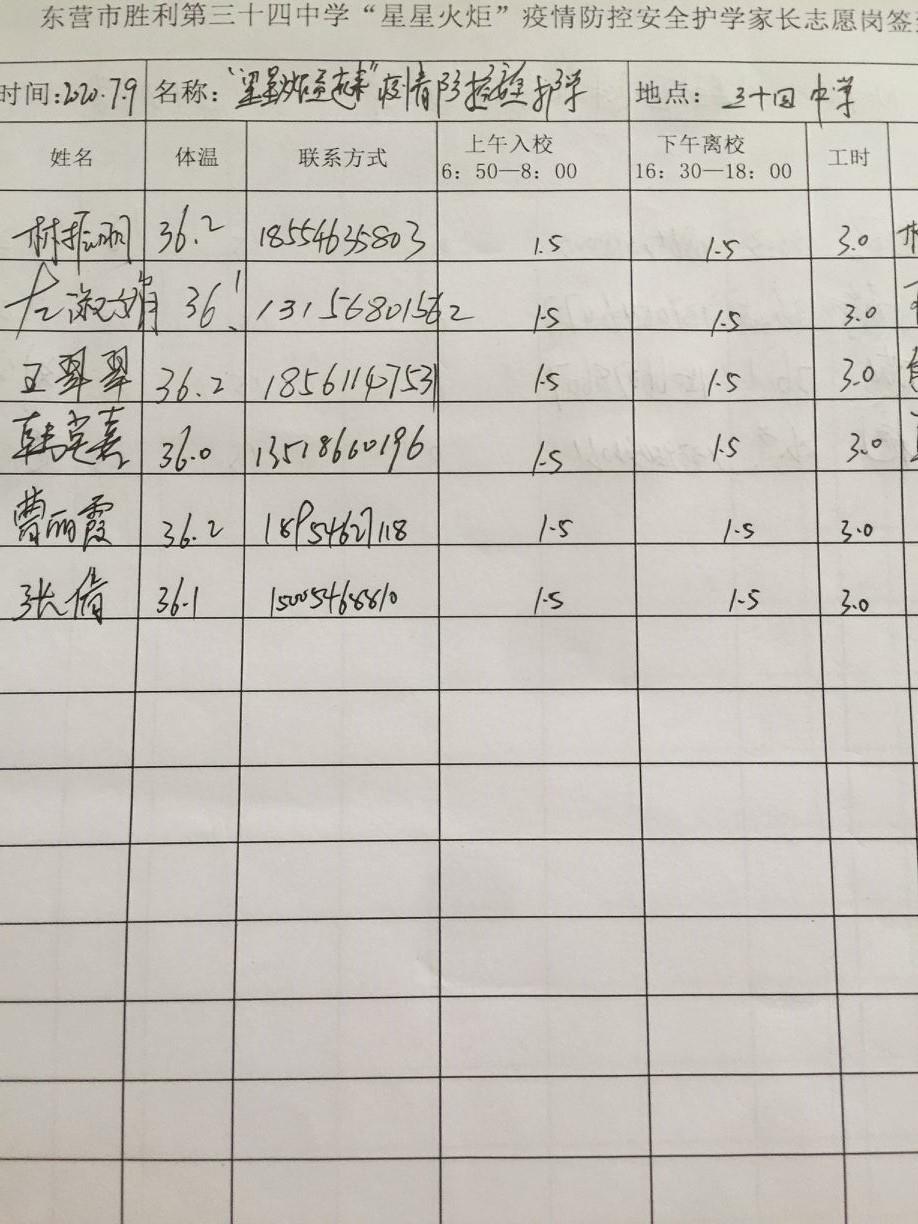 东营市胜利第三十四中学“星星火炬”疫情防控安全护学家长志愿岗签
时间:2020.7.9 名称: “星星火炬 疫情防控 护学 地点: 三十四中学
姓名 体温 联系方式 上午入校 下午离校 工时
6: 50—8: 00 16: 30—18: 00
36.2 18554635803 1.5 1.5 3.0
36.1 13156801562 1.5 1.5 3.0
王翠翠 36.2 18561147531 1.5 1.5 3.0
36.0 13518660196 1.5 1.5 3.0
曹丽霞 36.2 18954627118 1.5 1.5 3.0
张倩 36.1 1.5 1.5 3.0